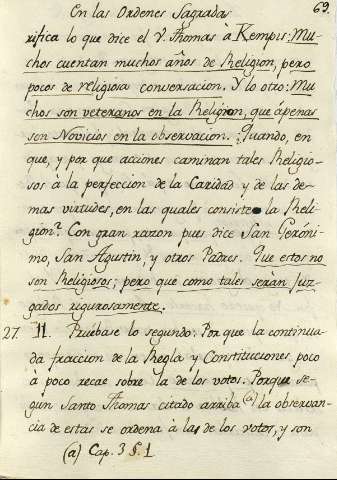 En las Ordenes Sagradas 69.
rifica lo que dice el V. Thomas à Kempis: Mu-
chos cuentan muchos años de Religion, pero
pocos de religiosa conversacion. Y lo otro: Mu
chos son veteranos en la Religion, que ápenas
son Novicios en la observacion. Quando, en
que, y por que acciones caminan tales Religio-
sos à la perfeccion de la Caridad y de las de-
mas virtudes, en las quales consiste la Reli-
gion? Con gran razon pues dice San Geróni-
mo, San Agustin, y otros Padres. Que estos no
son Religiosos; pero que como tales seràn Juz-
gados rigurosamente.
27. II. Pruébase lo segundo: Por que la continua-
da fraccion de la Regla y Constituciones poco
à poco recae sobre la de los votos. Porque se-
gun Santo Thomas citado arriba (a) la observan-
cia de estas se ordena à las de los votos, y son
(a) Cap. 3 §. 1